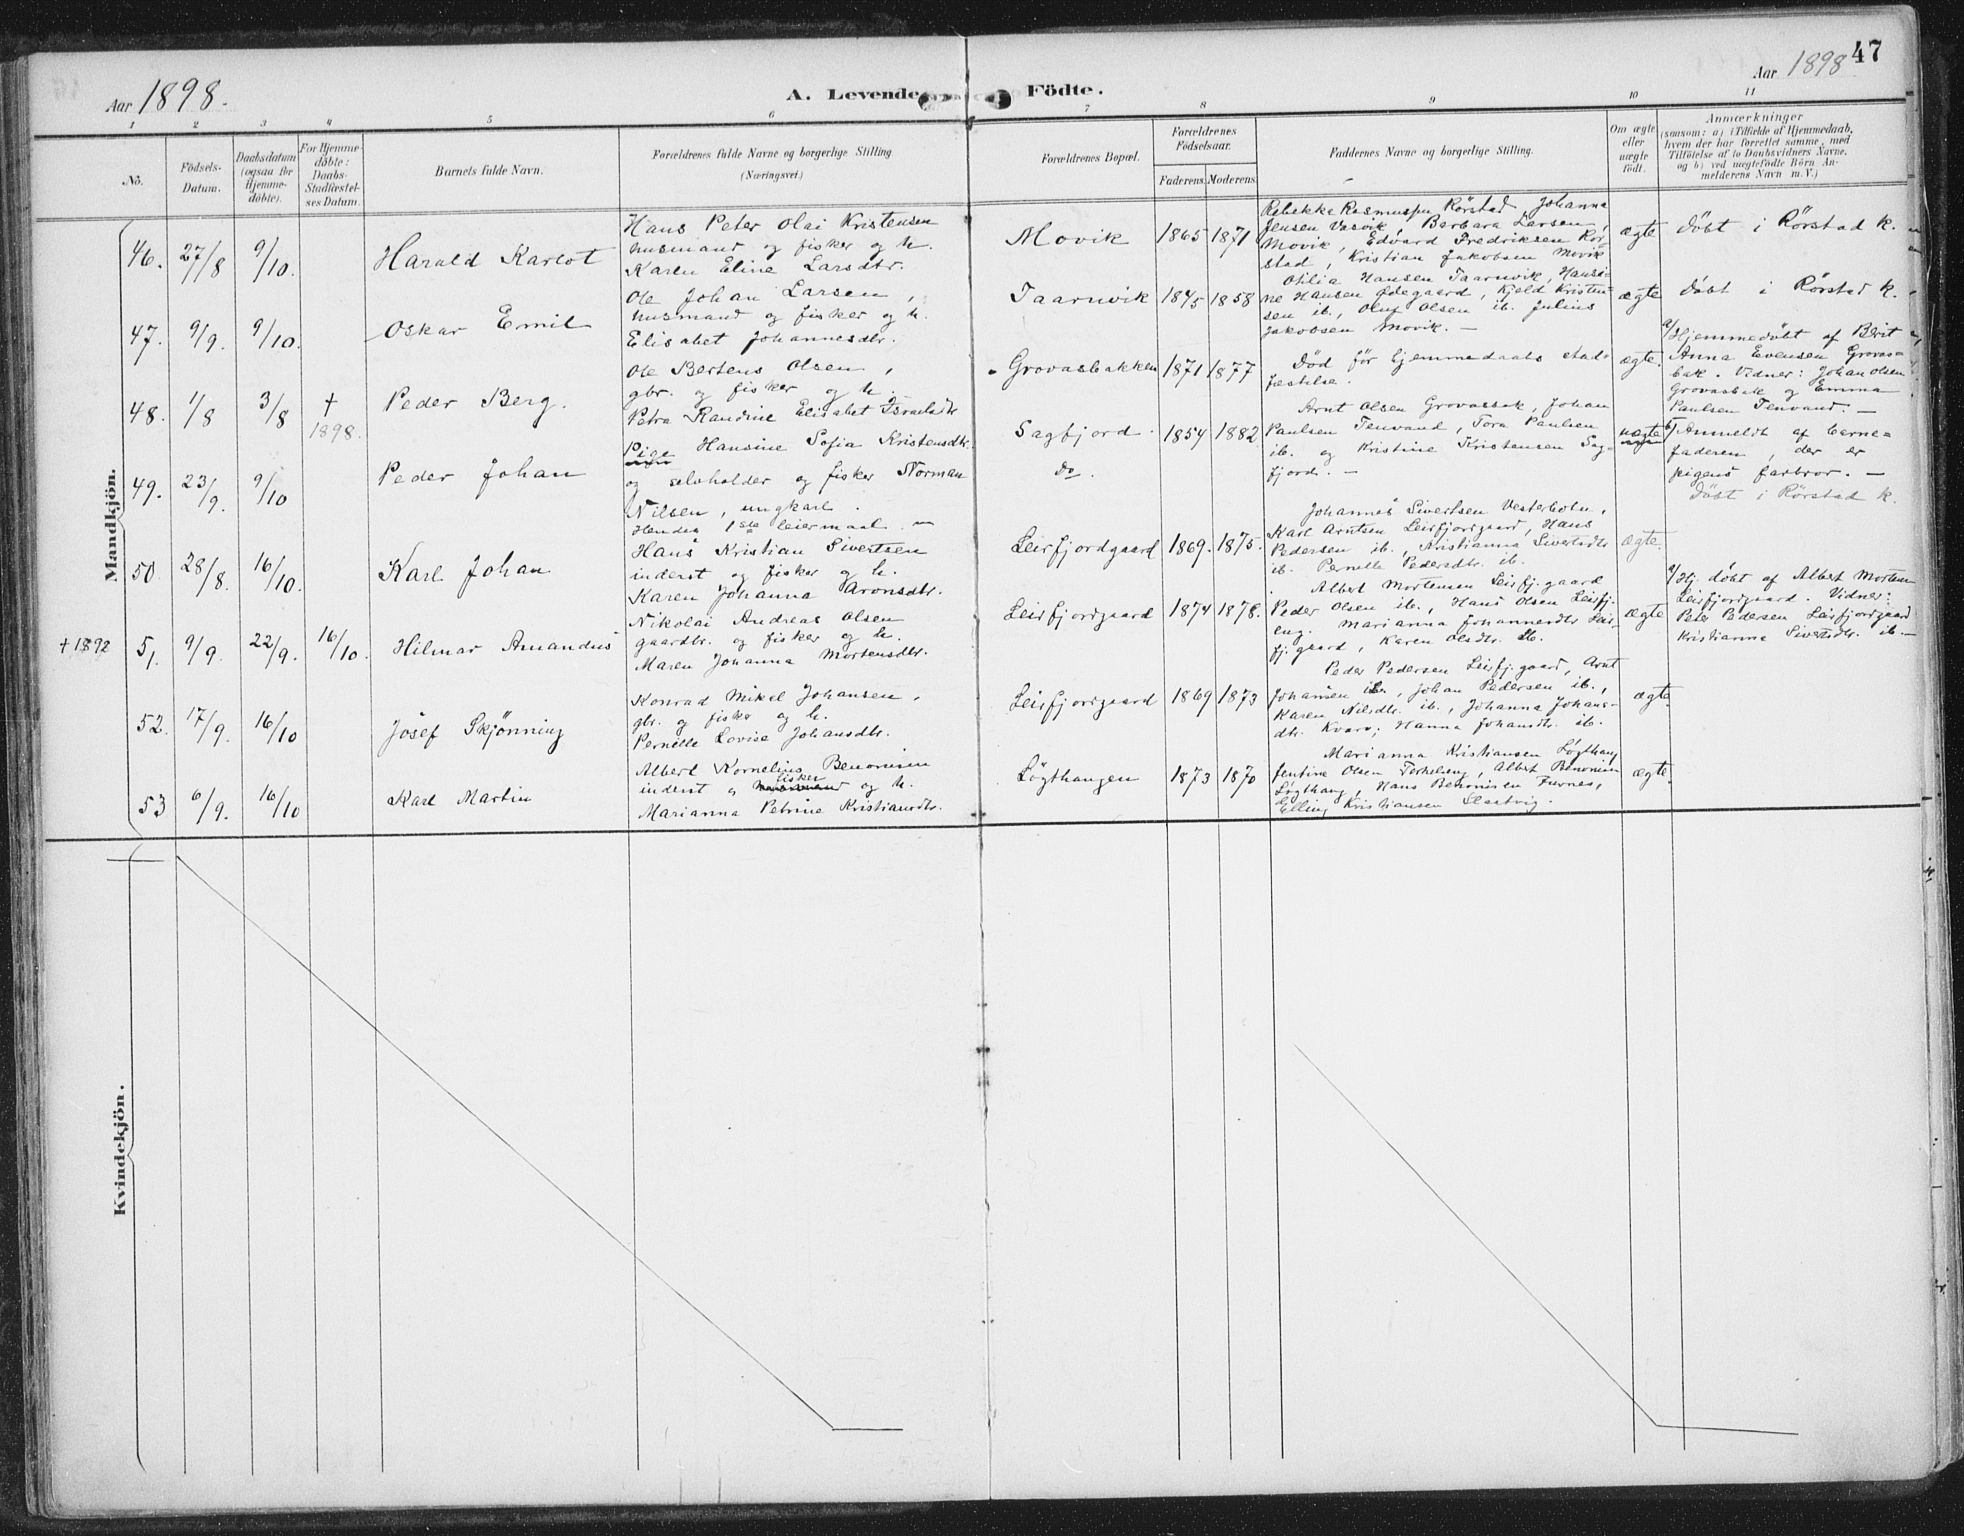 Aar 1898.
A. Levende Födte.
Aar 1898
47
1 2 3 4 5 6 7 8 9 10 11
No.
Födsels-
Datum.
Daabsdatum
(ogsaa for
Hjemme-
döbte).
For Hjemme-
döbte:
Daabs-
Stadfæstel-
ses Datum.
Barnets fulde Navn.
Forældrenes fulde Navne og borgerlige Stilling
(Næringsvei.)
Forældrenes Bopæl.
Forældrenes
Födselsaar.
Faderens. Moderens.
Faddernes Navne og borgerlige Stilling.
Om ægte
eller
uægte
födt.
Anmærkninger
(saasom: a) i Tilfælde af Hjemmedaab,
hvem der har forrettet samme, med
Tilföielse af to Daabsvidners Navne.
og b) ved uægtefödte Börn An-
melderens Navn m. V.)
Mandkjön.
46. 27/8 9/10. Harald Karlot
Hans Peter Olai Kristensen
husmand og fisker og h.
Karen Eline Larsdtr.
Movik 1865 1871
Rebekka Rasmussen Rörstad, Johanna
Jensen Vasvik, Barbara Larsen,
Movik, Edvard Fredriksen Rör-
stad, Kristian Jakobsen Movik
ægte
Döbt i Rörstad k.
47. 9/9. 9/10. Oskar Emil
Ole Johan Larsen,
husmand og fisker og h.
Elisabet Johannesdtr.
Taarnvik 1845 1858
Otilia Hansen Taarnvik, Hansi-
ne Hansen Ødegaard, Kjeld Kristen-
sen ib., Oluf Olsen ib. Julius
Jakobsen Movik. —
ægte
Döbt i Rörstad k.
48. 1/8 3/8 † 1898. Peder Berg.
Ole Bertens Olsen,
gbr. og fisker og h.
Petra Randine Elisabet Israelsdtr
Grovasbakken 1871 1877
Död för hjemmedaabs stad-
fæstelse.
ægte.
a/ Hjemmedöbt af Berit
Anna Evensen Grovas-
bak. Vidner: Johan Olsen
Grovasbak og Emma
Paulsen Tenvand. —
49. 23/9. 9/10 Peder Johan
Pige Hansine Sofia Kristensdtr.
og selvholder og fisker Norman
Nilsen, ungkarl.
Hendes 1ste leiermaal.
Sagfjord. 1854 1882
Do.
Arnt Olsen Grovasbak, Johan
Paulsen Tenvand, Tora Paulsen
ib. og Kristine Kristensen Sag-
fjord. —
uægte
b/ Anmeldt af barne-
faderen, der er
pigens farbror. —
Döbt i Rörstad k.
50. 28/8. 16/10. Karl Johan
Hans Kristian Sivertsen
inderst og fisker og h.
Karen Johanna Aronsdtr.
Leirfjordgaard 1869. 1875.
Johannes Sivertsen Vesterbotn,
Karl Arntsen Leirfjordgaard, Hans
Pedersen ib., Kristianna Sivertsdtr
ib. Pernelle Pedersdtr. ib.
ægte.
† 1898
51. 9/9. 22/9. 16/10. Hilmar Amandus
Nikolai Andreas Olsen
gaardbr. og fisker og h.
Maren Johanna Mortensdtr.
Leirfjordgaard 1874 1878.
Albert Mortensen Leirfj. gaard
Peder Olsen ib., Hans Olsen Leirfj.
eng. Marianna Johannesdtr Leir-
fj. gaard, Karen Olsdtr. ib.
ægte
a/ Hj. döbt af Albert Mortensen
Leirfjordgaard. Vidner:
Peter Pedersen Leirfjordgaard
Kristianna Sivertsdtr. ib. —
52. 17/9. 16/10 Jósef Skjönning
Konrad Mikel Johansen,
gbr. og fisker og h.
Pernelle Lovise Johansdtr.
Leirfjordgaard 1869 1873
Peder Pedersen Leirfj. gaard, Arnt
Johansen ib., Johan Pedersen ib.,
Karen Nilsdtr. ib., Johanna Johans-
dtr. Kvarv; Hanna Johansdtr. ib.
ægte.
53 6/9. 16/10 Karl Martin
Albert Kornelius Benonisen
inderst og fisker og h.
Marianna Petrine Kristiansdtr.
Lögthaugen 1873 1870
Marianna Kristiansen Lögthaug
Jentine Olsen Terkelsng, Albert Benonisen
Lögthaug, Hans Benonisen Furnes,
Elling Kristiansen Slaatvig.
ægte.
Kvindekjön.